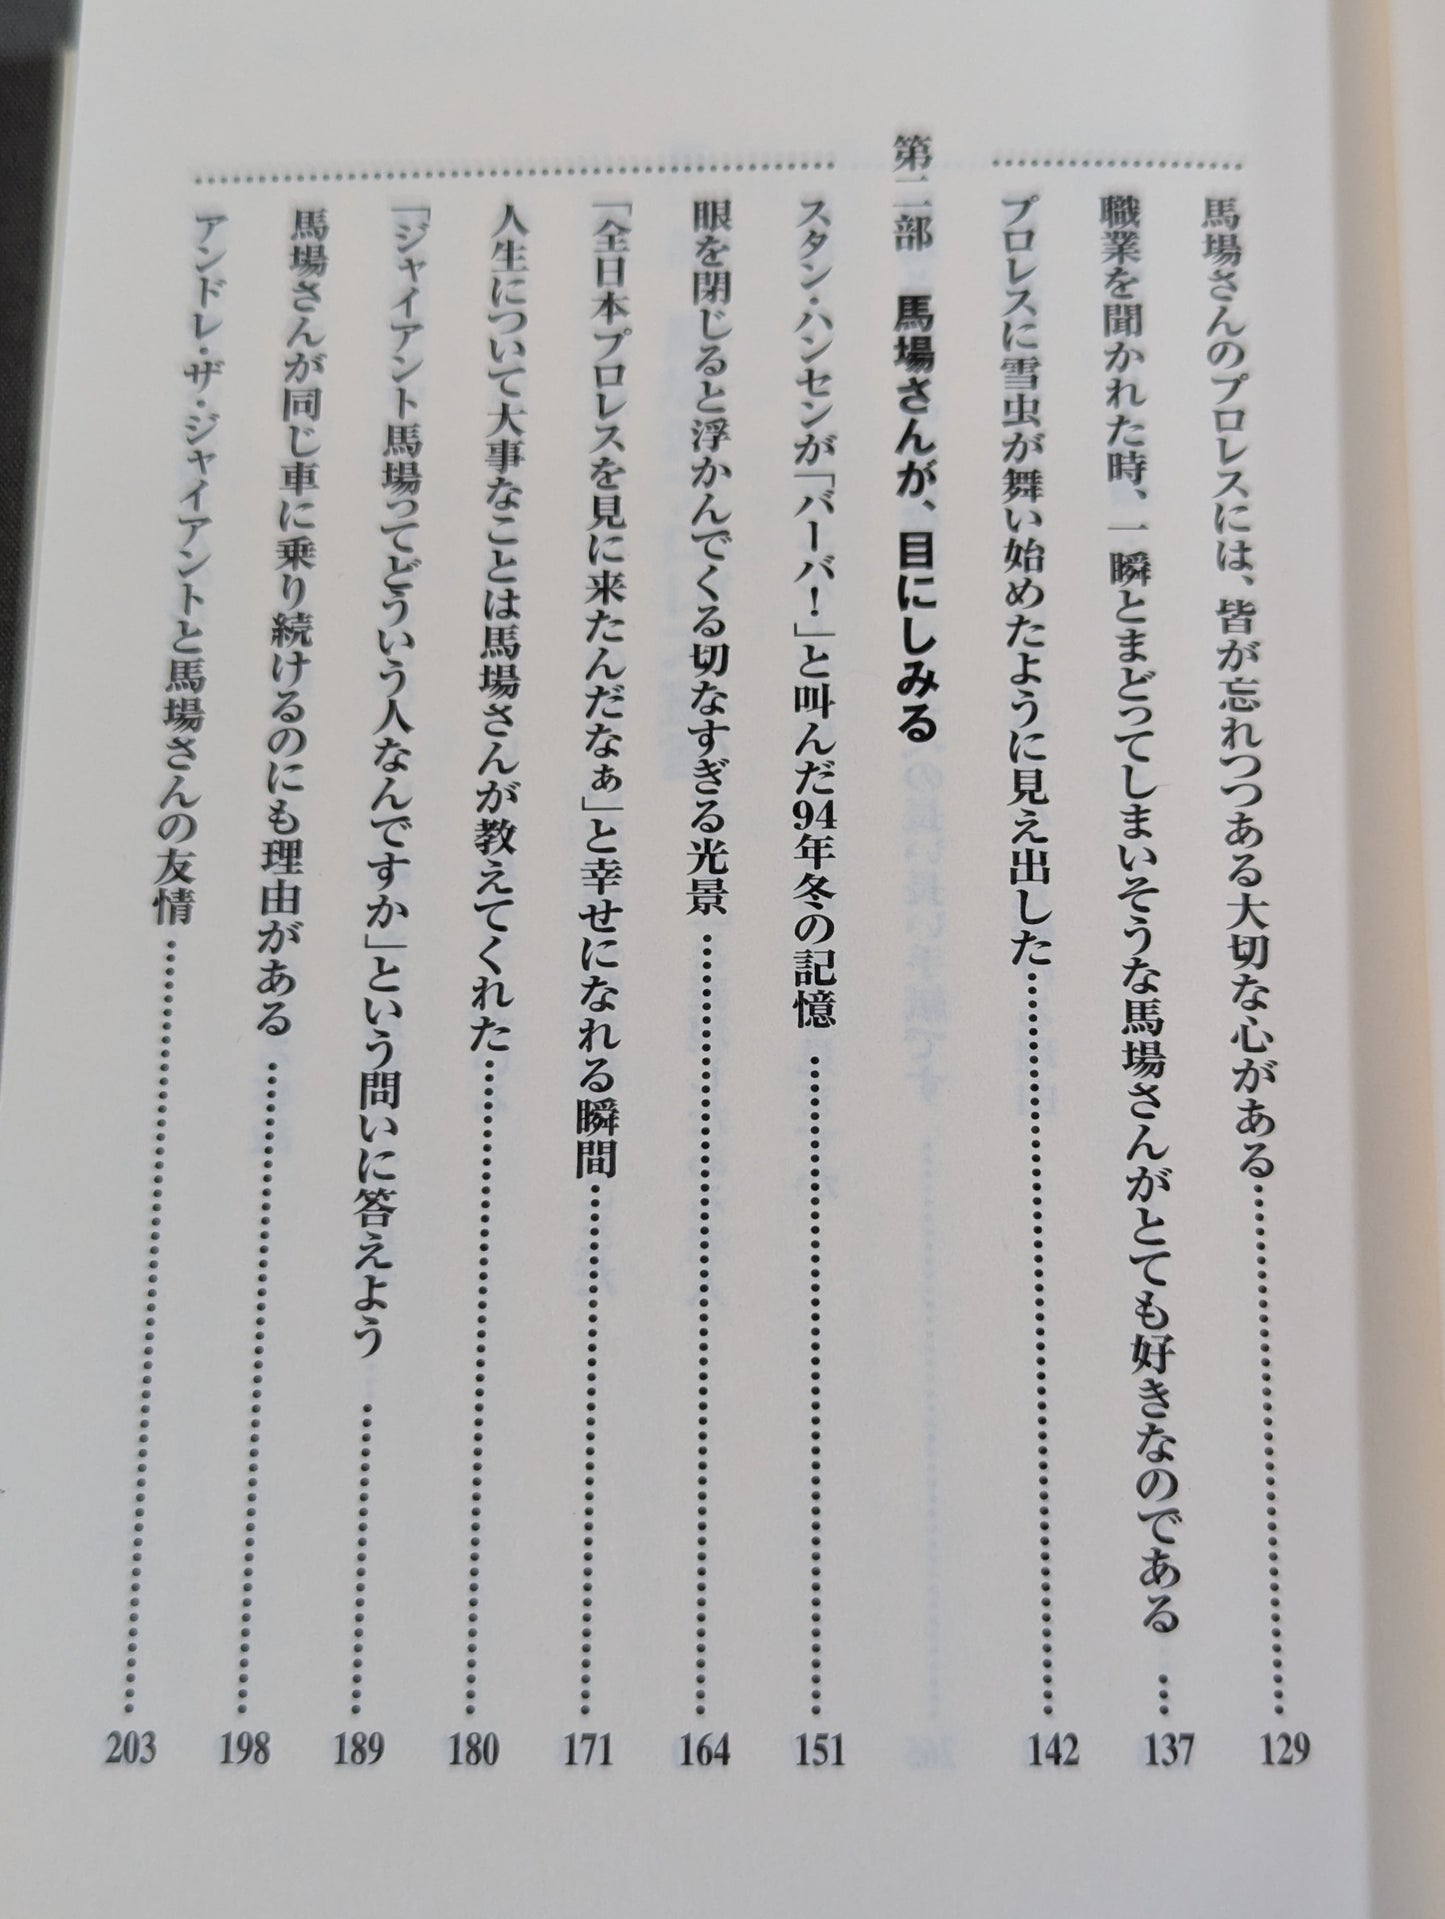 馬場さんのプロレスには、皆が忘れつつある大切な心がある……………………129
職業を聞かれた時、一瞬とまどってしまいそうな馬場さんがとても好きなのである……137
プロレスに雪虫が舞い始めたように見え出した……………………142
第二部　馬場さんが、目にしみる
スタン・ハンセンが「バーバ！」と叫んだ94年冬の記憶……………………151
眼を閉じると浮かんでくる切なすぎる光景……………………164
「全日本プロレスを見に来たんだなぁ」と幸せになれる瞬間……………………171
人生について大事なことは馬場さんが教えてくれた……………………180
「ジャイアント馬場ってどういう人なんですか」という問いに答えよう……………………189
馬場さんが同じ車に乗り続けるのにも理由がある……………………198
アンドレ・ザ・ジャイアントと馬場さんの友情……………………203